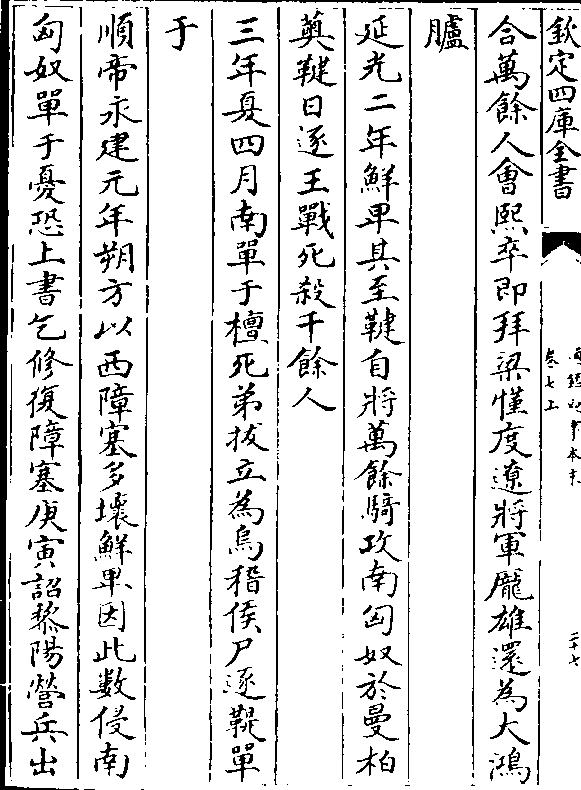 欽定四庫全書
通鑑紀事本末
卷七上
二十七
合萬餘人會熙卒即拜梁慬度遼將軍龎雄還為大鴻
臚
延光二年鮮卑其至鞬自將萬餘騎攻南匈奴於曼柏
薁鞬日逐王戰死殺千餘人
三年夏四月南單于檀死弟拔立為烏稽侯尸逐鞮單
于
順帝永建元年朔方以西障塞多壞鮮卑因此數侵南
匈奴單于憂恐上書乞修復障塞庚寅詔黎陽營兵出